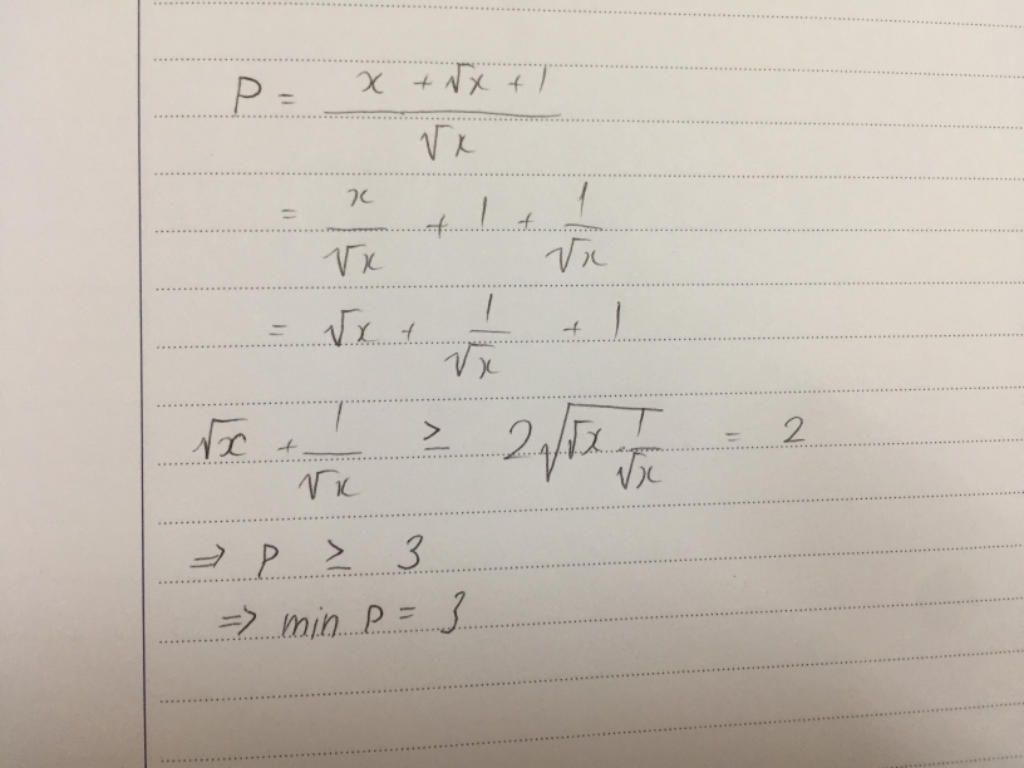 P = (x + √x + 1) / √x
= x/√x + 1 + 1/√x
= √x + 1/√x + 1
√x + 1/√x ≥ 2√(√x . 1/√x) = 2
⇒ P ≥ 3
⇒ min P = 3